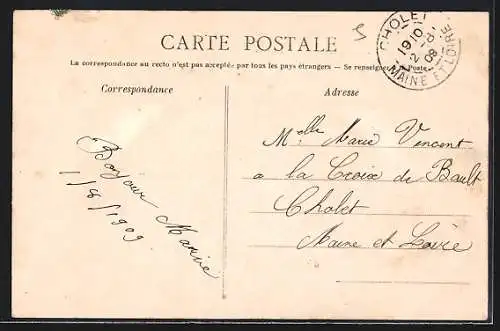 CARTE POSTALE
La correspondance au recto n'est pas acceptée par tous les pays étrangers — Se renseigner à la Poste
Correspondance
Adresse
CHOLET
1910
2 8
08
MAINE ET LOIRE
Bonjour Marie
1/8/1909
Melle Marie Vincent
a la Croix de Bault
Cholet
Maine et Loire